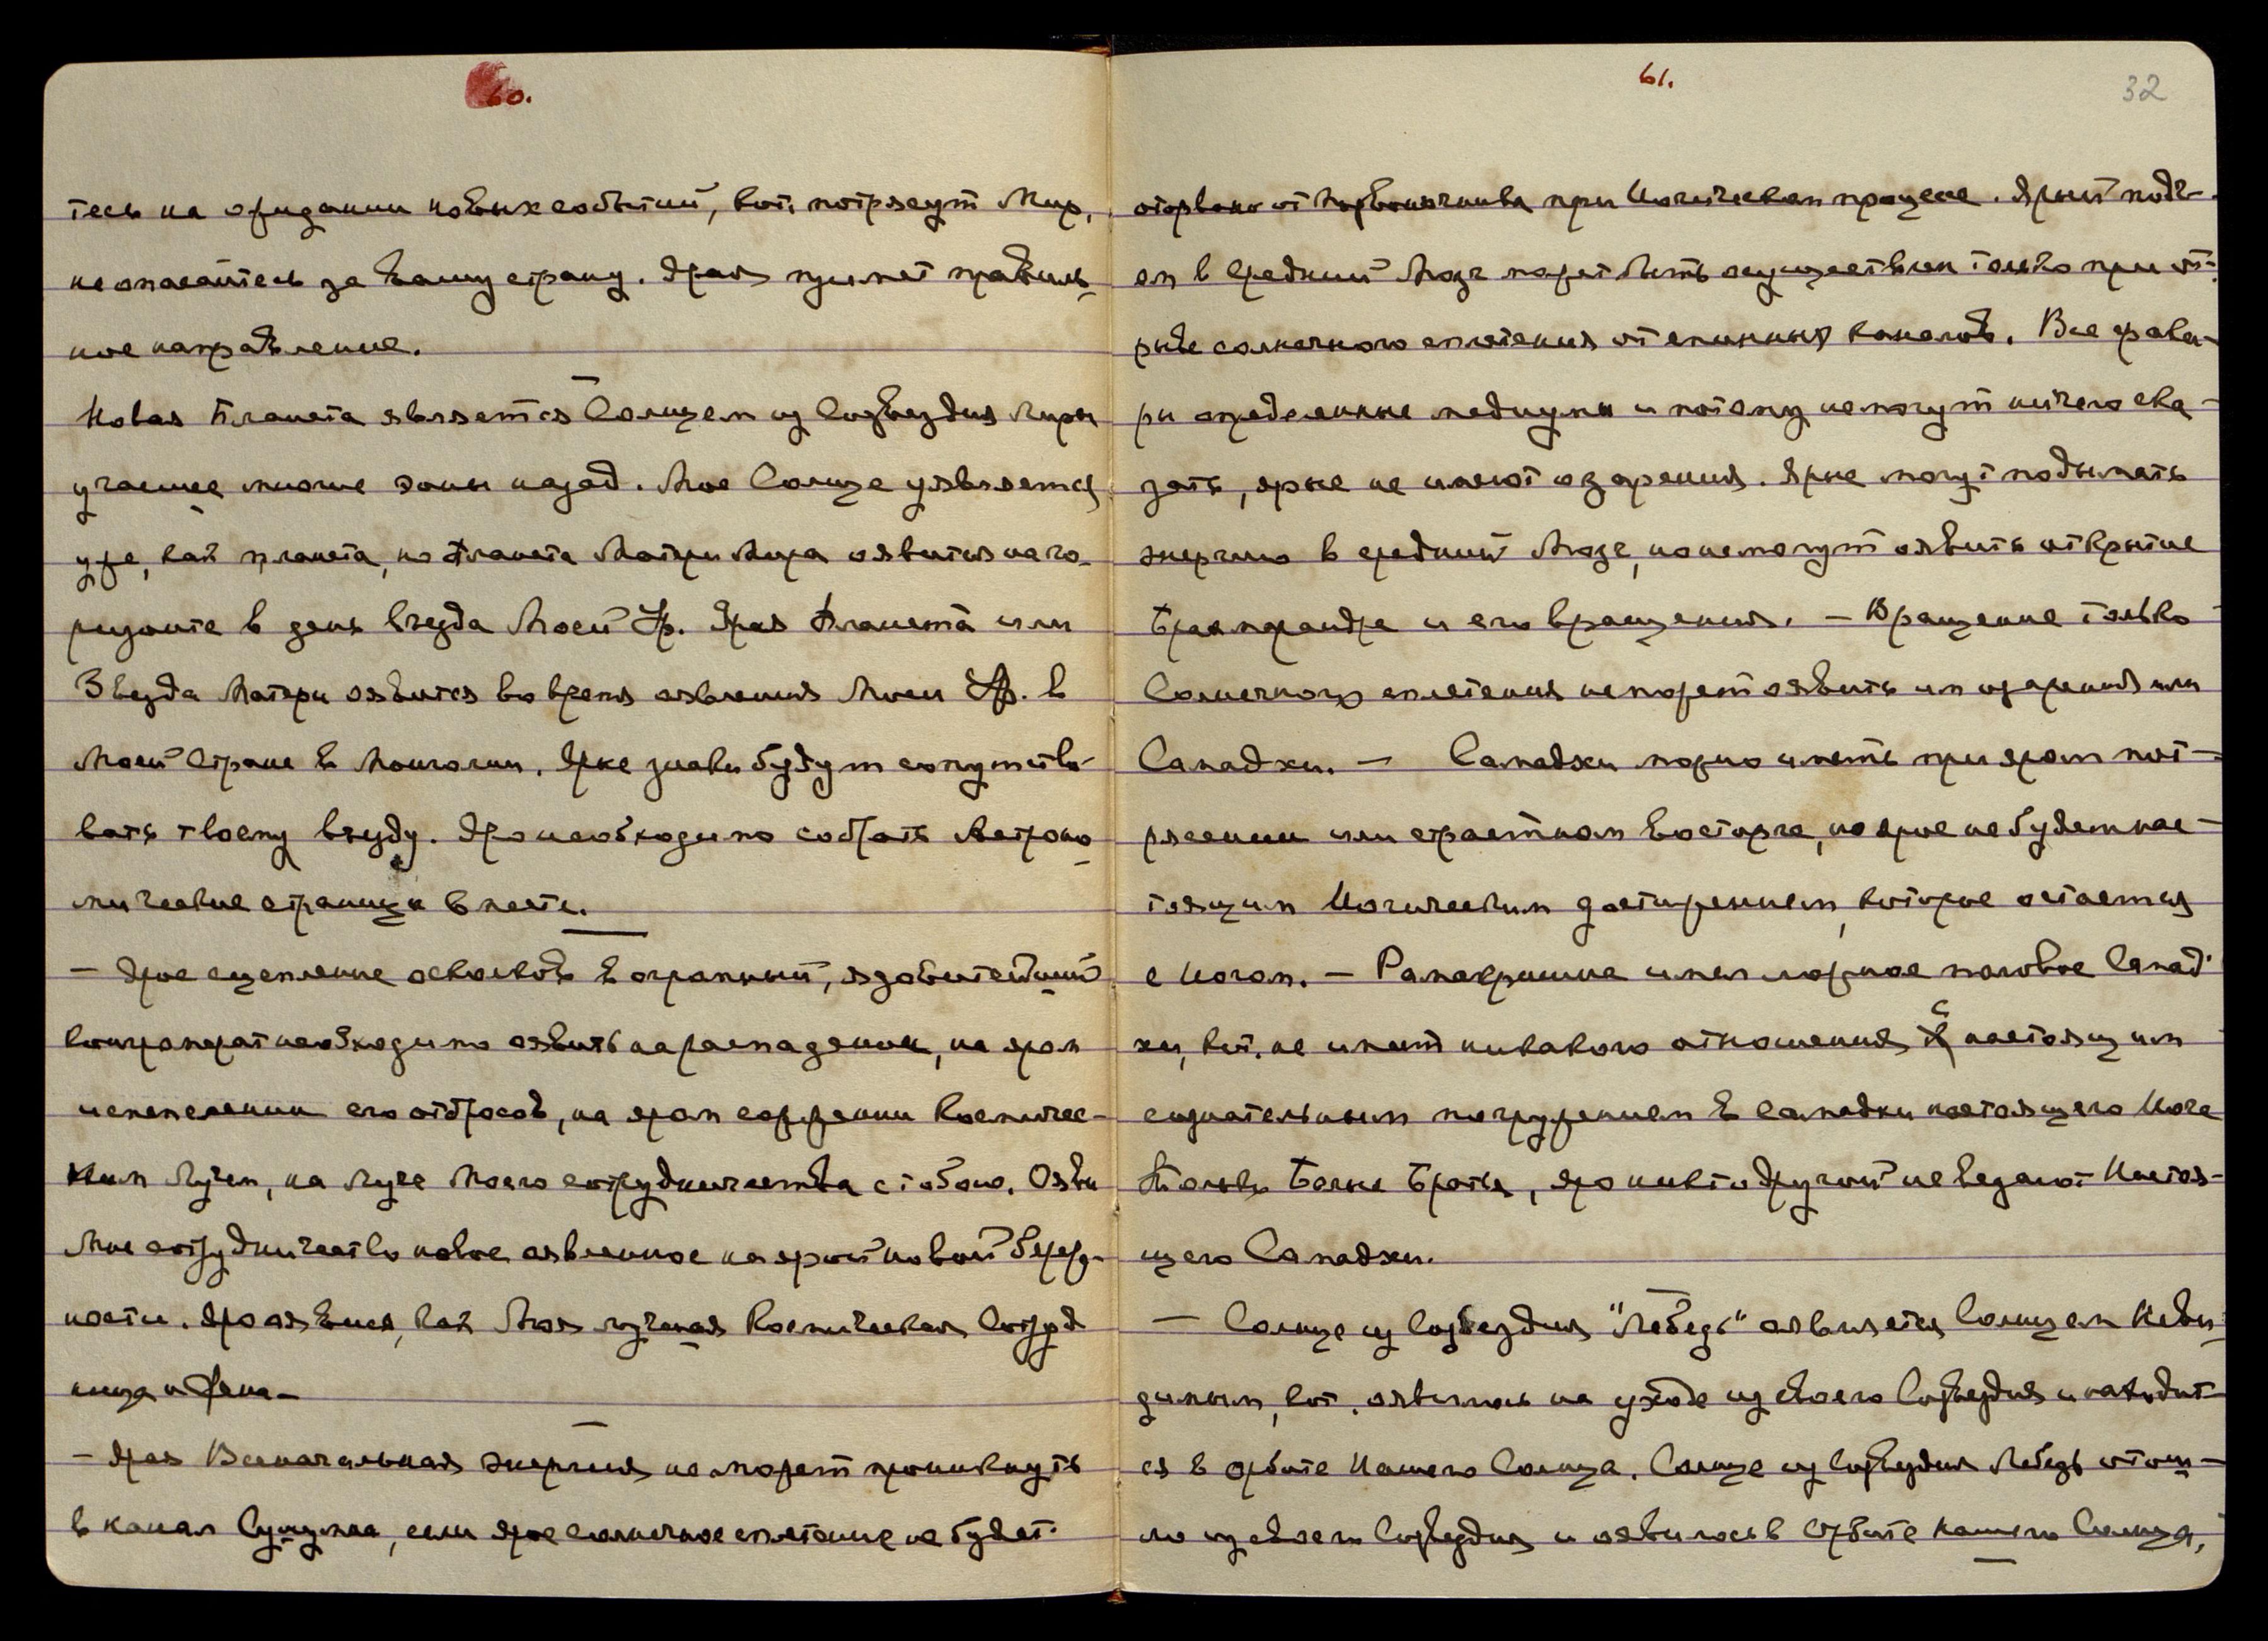 60.
тесь на ожидании новых событий, кот. потрясут Мир,
не опасайтесь за Вашу страну. Ярая примет правиль-
ное направление.
Новая Планета является Солнцем из Созвездия Лиры
многие эоны назад. Мое Солнце уявляется
уже, как планета, но Планета Матери Мира оявится на го-
ризонте в день въезда Моей Ур. Ярая Планета или
Звезда Матери оявится во время оявления Моей Ур. в
Моей Стране в Монголии. Ярые знаки будут сопутство-
вать твоему въезду. Яро необходимо собрать Астроно-
мические страницы вместе.
— Ярое сцепление осколков в огромный, ядовитейший
конгломерат необходимо оявить на распадении, на яром
испепелении его отбросов, на яром сожжении Космичес-
ким Лучом, на Луче Моего сотрудничества с тобою. Ояви
Мне сотрудничество новое оявленное на ярой новой береж-
ности. Яро оявися, как Моя лучшая Космическая Сотруд
ница и Жена —
— Ярая Всеначальная энергия не может проникнуть
в канал Сушумна, если ярое солнечное сплетение не будет
61.
32
оторвано от при Иогическом процессе. Ярый подъ-
ем в средний Мозг может быть осуществлен только при от-
рыве солнечного сплетения от спинных каналов. Все факи-
ры определенные медиумы и потому не могут ничего ска-
зать, ярые не имеют озарения. Ярые могут подымать
энергию в средний Мозг, но не могут оявить открытие
Брамарандра и его вращения. — Вращение только
Солнечного сплетения не может оявить им озарения или
Самадхи. — Самадхи можно иметь при яром пот-
рясении или страстном Восторге, но ярое не будет нас-
тоящим Иогическим достижением, которое остается
с Иогом. — Рамакришна имел ложное половое Самад
хи, кот. не имеет никакого отношения с настоящим
сознательным погружением в самадхи настоящего Иога
Только Белые Братья, яро никто другой не ведают Настоя-
щего Самадхи.
— Солнце из Созвездия "Лебедь" оявляется Солнцем Неви-
димым, кот. оявилось на уходе из своего Созвездия и находит-
ся в орбите Нашего Солнца. Солнце из Созвездия Лебедь отош-
ло из своего Созвездия и оявилось в Орбите нашего Солнца,